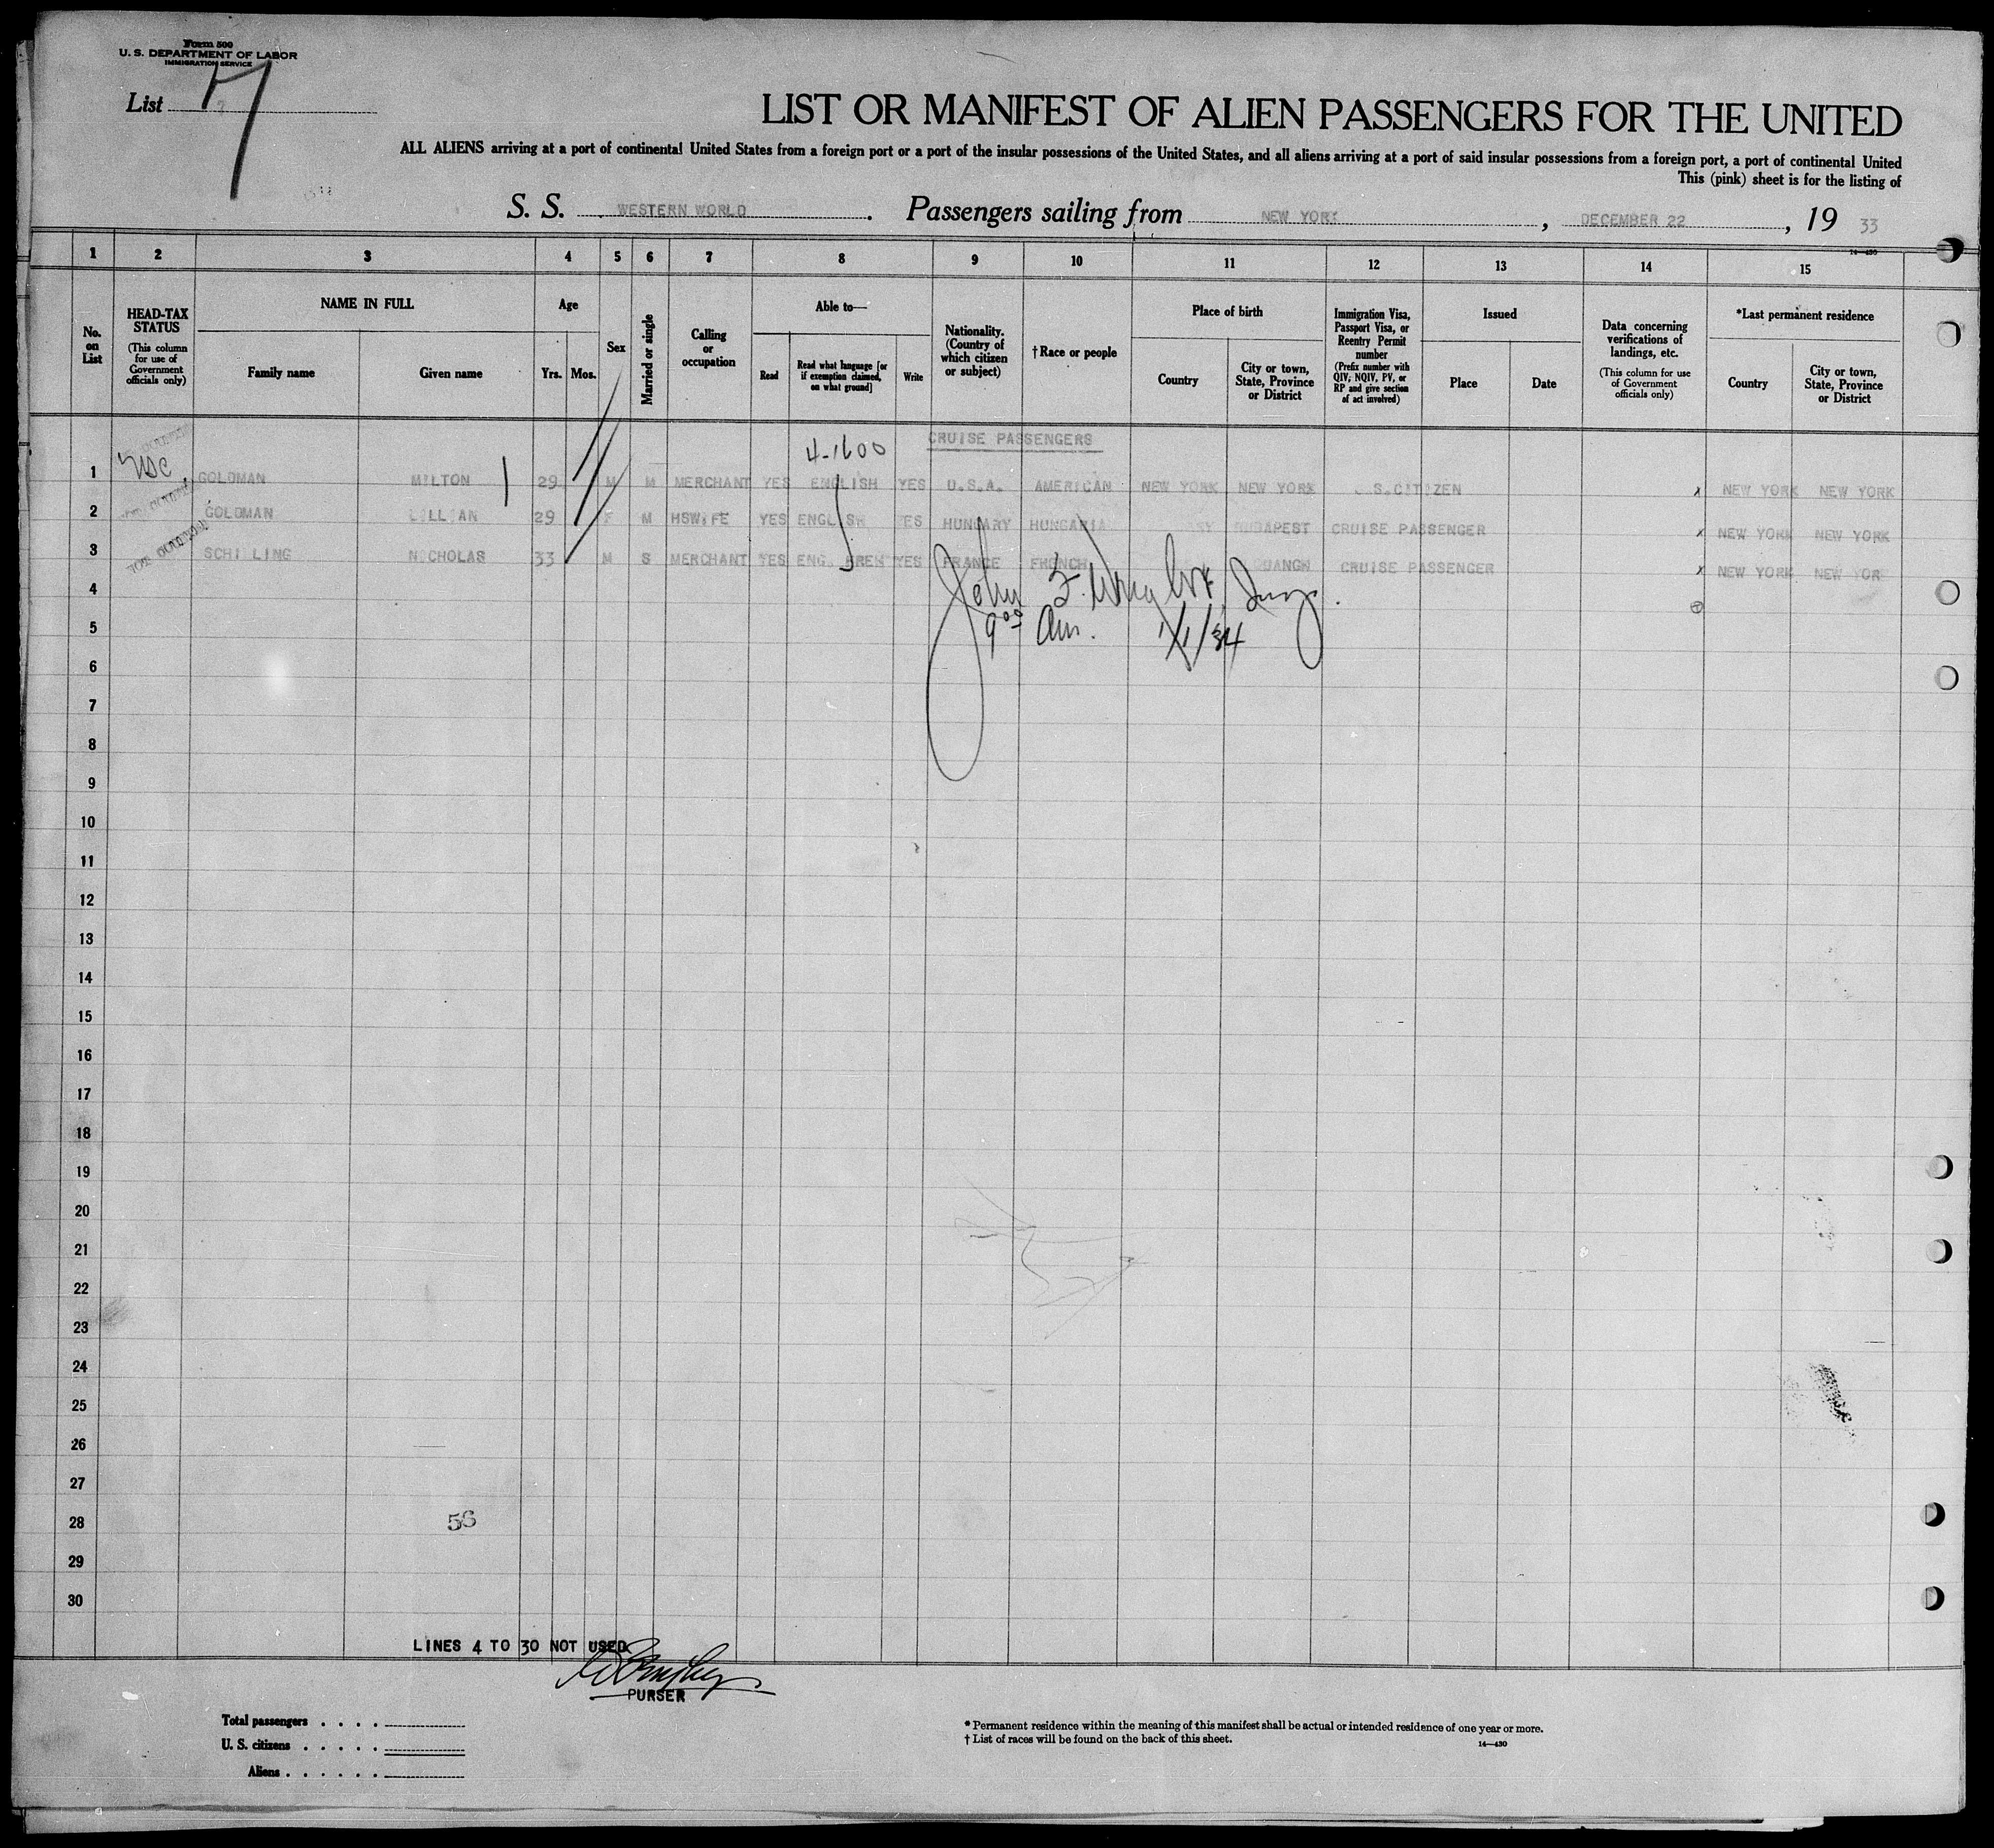 Form 500
U. S. DEPARTMENT OF LABOR
IMMIGRATION SERVICE
List 7
LIST OR MANIFEST OF ALIEN PASSENGERS FOR THE UNITED
ALL ALIENS arriving at a port of continental United States from a foreign port or a port of the insular possessions of the United States, and all aliens arriving at a port of said insular possessions from a foreign port, a port of continental United
This (pink) sheet is for the listing of
S. S. WESTERN WORLD . Passengers sailing from NEW YORK , DECEMBER 22 , 19 33
14—430
1 2 3 4 5 6 7 8 9 10 11 12 13 14 15
No. on List
HEAD-TAX STATUS (This column for use of Government officials only)
NAME IN FULL
Family name Given name
Age
Yrs. Mos.
Sex
Married or single
Calling or occupation
Able to—
Read Read what language [or if exemption claimed, on what ground] Write
Nationality. (Country of which citizen or subject)
†Race or people
Place of birth
Country City or town, State, Province or District
Immigration Visa, Passport Visa, or Reentry Permit number (Prefix number with QIV, NQIV, PV, or RP and give section of act involved)
Issued
Place Date
Data concerning verifications of landings, etc. (This column for use of Government officials only)
*Last permanent residence
Country City or town, State, Province or District
4-1600 CRUISE PASSENGERS
1 USC GOLDMAN MILTON 29 M M MERCHANT YES ENGLISH YES U.S.A. AMERICAN NEW YORK NEW YORK U.S.CITIZEN x NEW YORK NEW YORK
2 GOLDMAN LILLIAN 29 F M HSWIFE YES ENGLISH YES HUNGARY HUNGARIA BUDAPEST CRUISE PASSENGER x NEW YORK NEW YORK
3 SCHILLING NICHOLAS 33 M S MERCHANT YES ENG. YES FRANCE FRENCH CRUISE PASSENGER x NEW YORK NEW YORK
4 John F. Insp.
5 9 00 Am. 1/1/34
6
7
8
9
10
11
12
13
14
15
16
17
18
19
20
21
22
23
24
25
26
27
28
29
30
LINES 4 TO 30 NOT USED
PURSER
Total passengers . . . .
U. S. citizens . . . . .
Aliens . . . . . .
* Permanent residence within the meaning of this manifest shall be actual or intended residence of one year or more.
† List of races will be found on the back of this sheet.
14—430